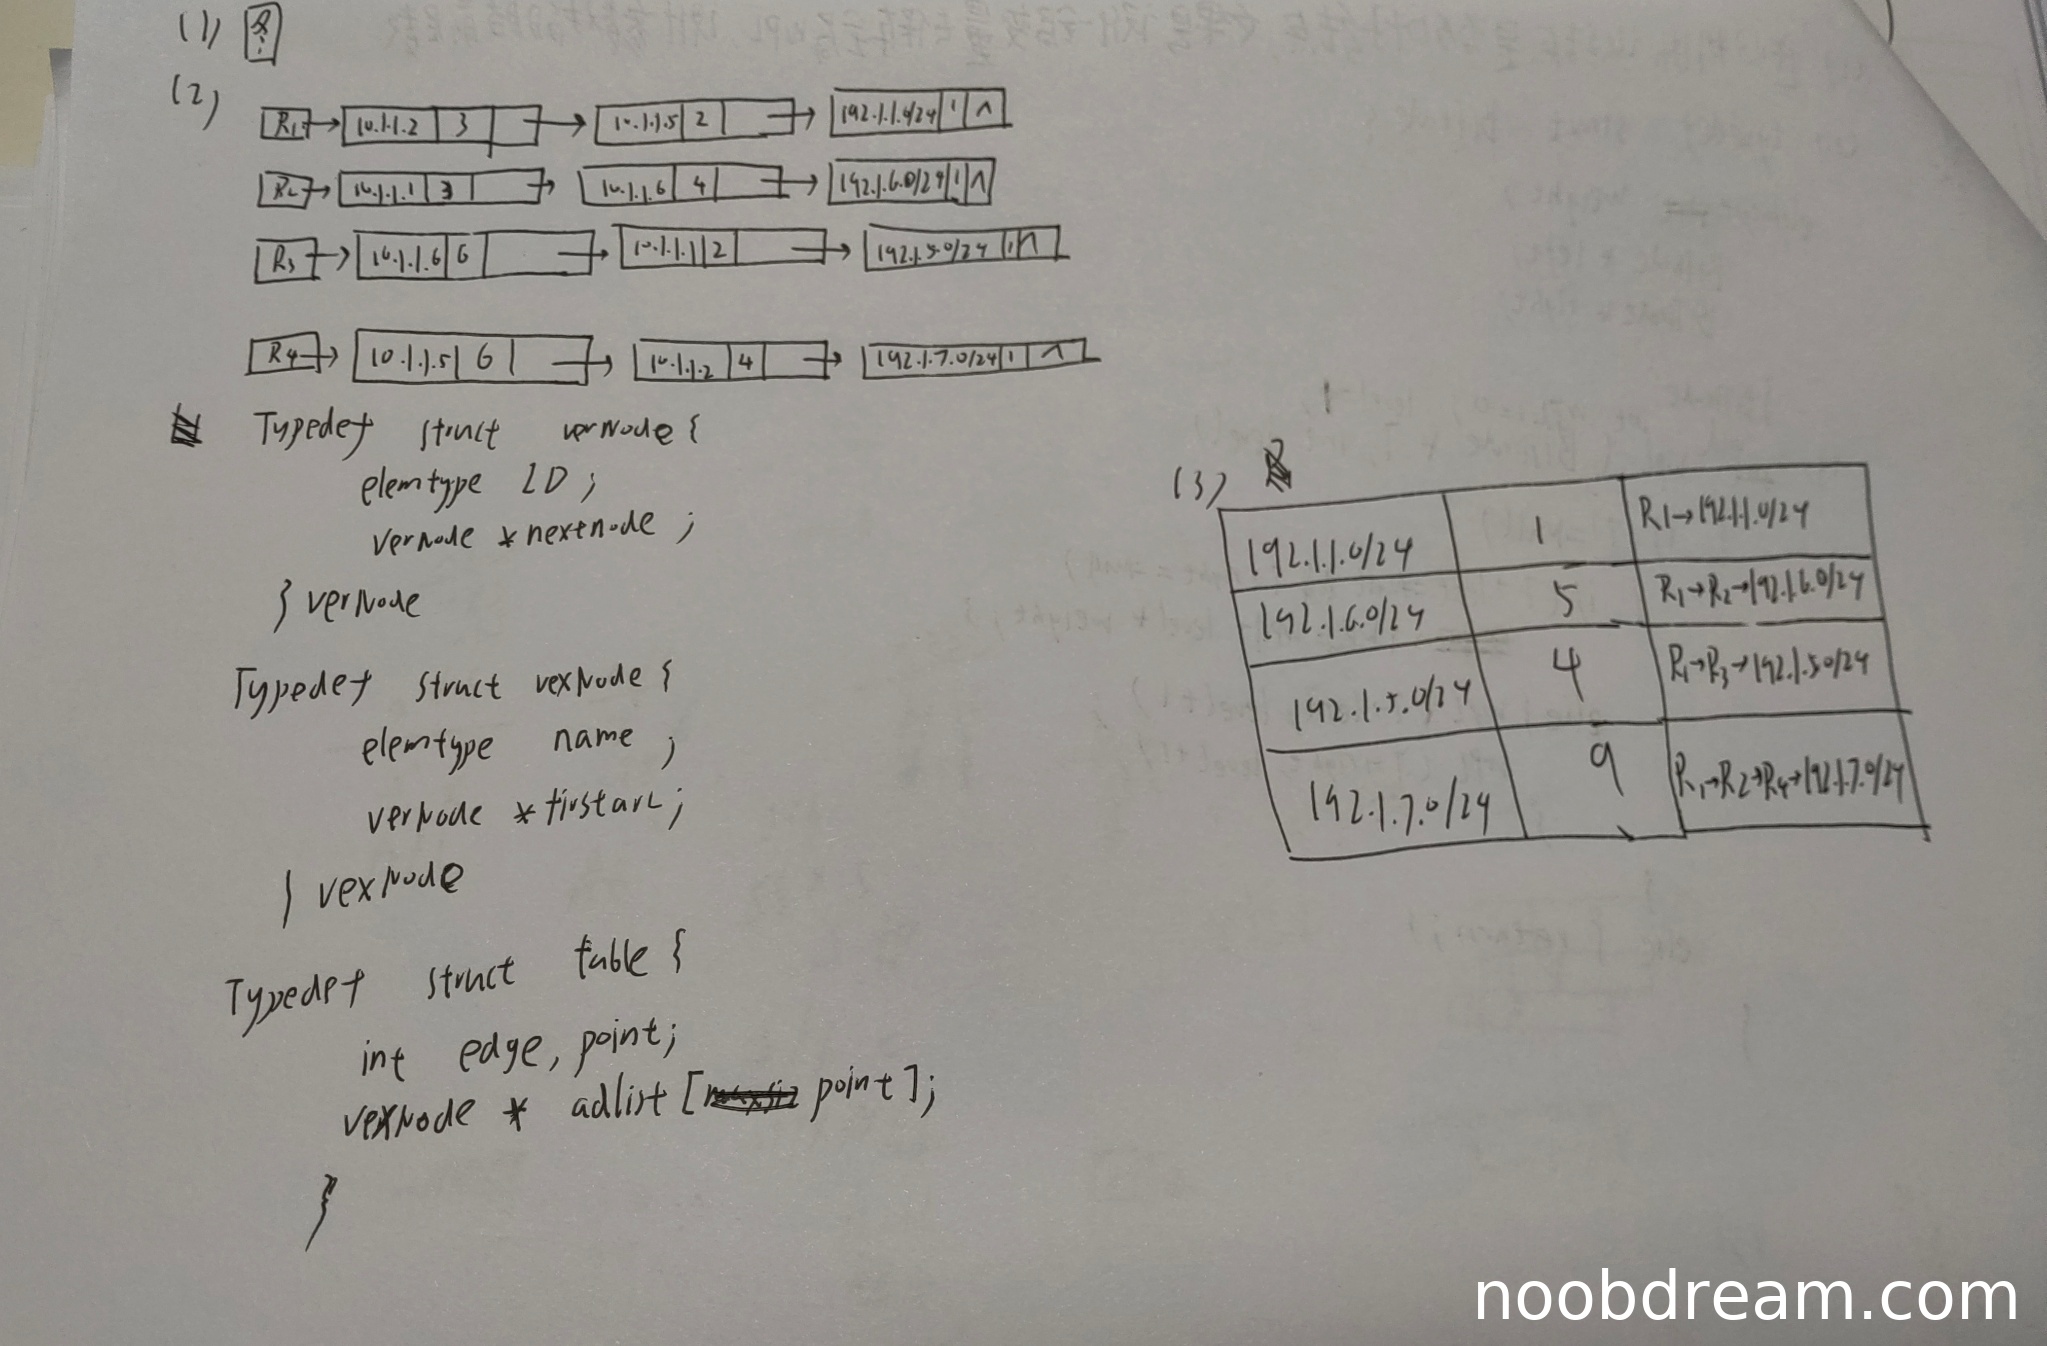 (1) 图
(2)
R1 10.1.1.2 3 10.1.1.5 2 192.1.1.0/24 1 ∧
R2 10.1.1.1 3 10.1.1.6 4 192.1.6.0/24 1 ∧
R3 10.1.1.6 6 10.1.1.1 2 192.1.5.0/24 1 ∧
R4 10.1.1.5 6 10.1.1.2 4 192.1.7.0/24 1 ∧
Typedef struct verNode {
elemtype ID ;
verNode *nextnode ;
} verNode
Typedef struct vexNode {
elemtype name ;
verNode *firstarc ;
} vexNode
Typedef struct table {
int edge, point;
vexNode * adlist [ point ];
}
(3)
192.1.1.0/24 1 R1→192.1.1.0/24
192.1.6.0/24 5 R1→R2→192.1.6.0/24
192.1.5.0/24 4 R1→R3→192.1.5.0/24
192.1.7.0/24 9 R1→R2→R4→192.1.7.0/24
noobdream.com